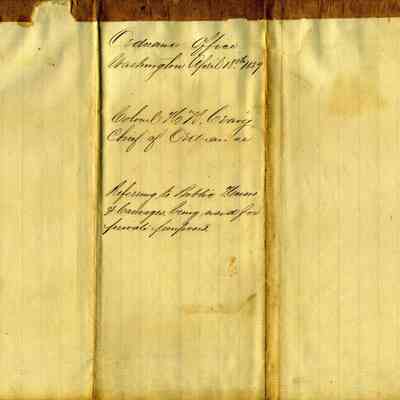 Ordnance Office
Washington April 18th 1859
Colonel H. K. Craig
Chief of Ordnance
Referring to Public Horses
& Carriages being used for
private purposes